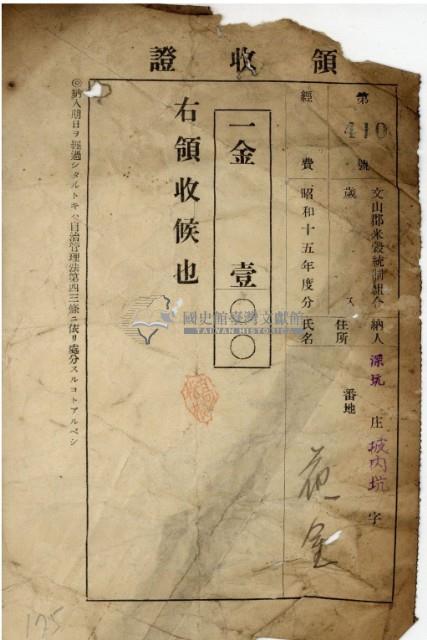 領收證
第410號
文山郡米穀統制組合 納人 深坑 庄 坡內坑 字
歲入
住所 番地
經費 昭和十五年度分 氏名
一金 壹〇〇
右領收候也
◎納入期日ヲ經過シタルトキハ自治管理法第四三條ニ依リ處分スルコトアルベシ
國史館臺灣文獻館
TAIWAN HISTORICA
175